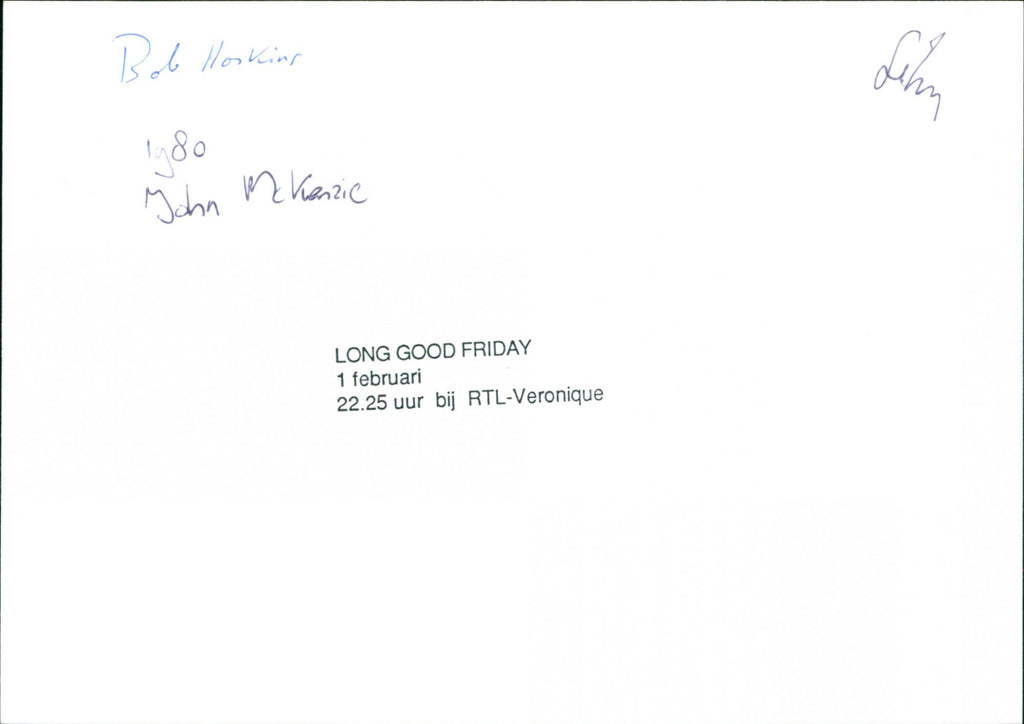 Bob Hoskins
1980
John McKenzie
LONG GOOD FRIDAY
1 februari
22.25 uur bij RTL-Veronique